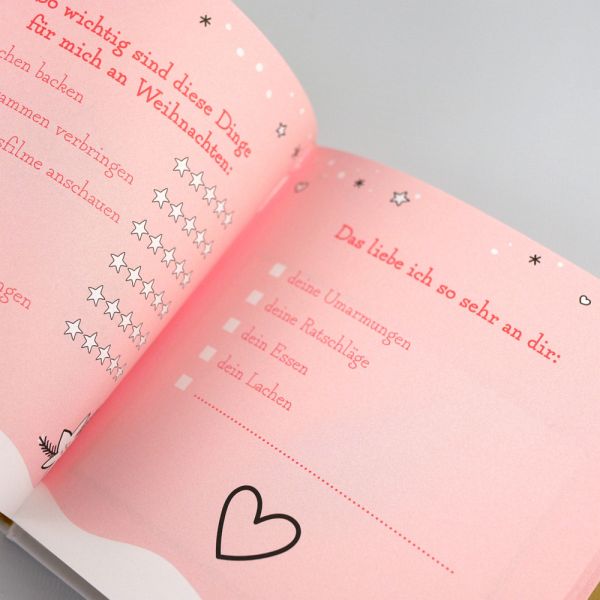 so wichtig sind diese Dinge
für mich an Weihnachten:
backen
verbringen
anschauen
Das liebe ich so sehr an dir:
deine Umarmungen
deine Ratschläge
dein Essen
dein Lachen